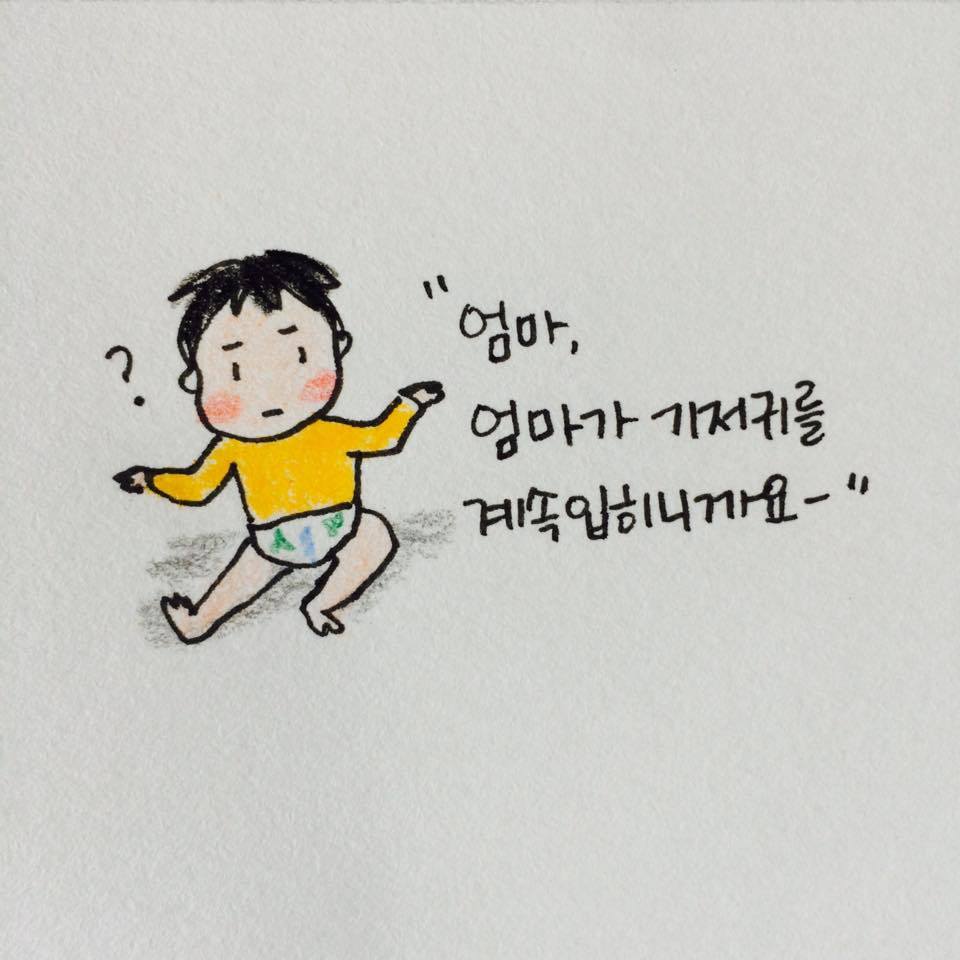 ?
"엄마,
엄마가 기저귀를
계속입히니까요-"